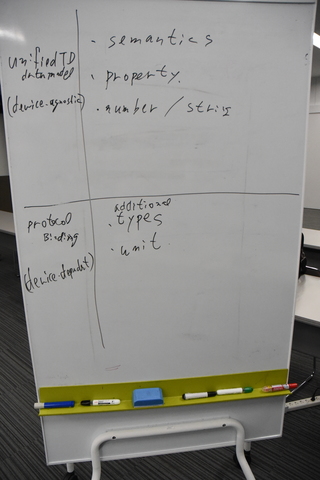 unified TD
data model
(device-agnostic)
· semantics
· property.
· number / string
protocol
Binding
(device-dependent)
additional
· types
· unit.